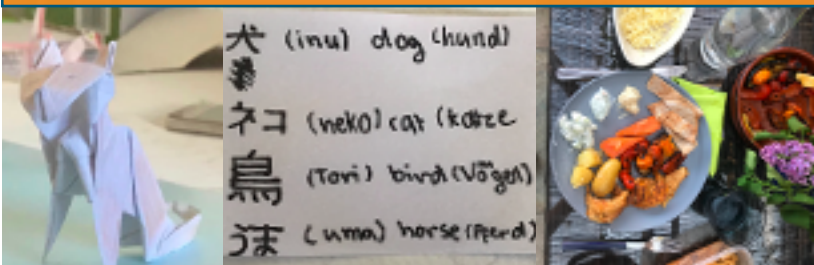 犬 (inu) dog (hund)
ネコ (neko) cat (katze
鳥 (Tori) bird (Vögel)
うま (uma) horse (Pferd)